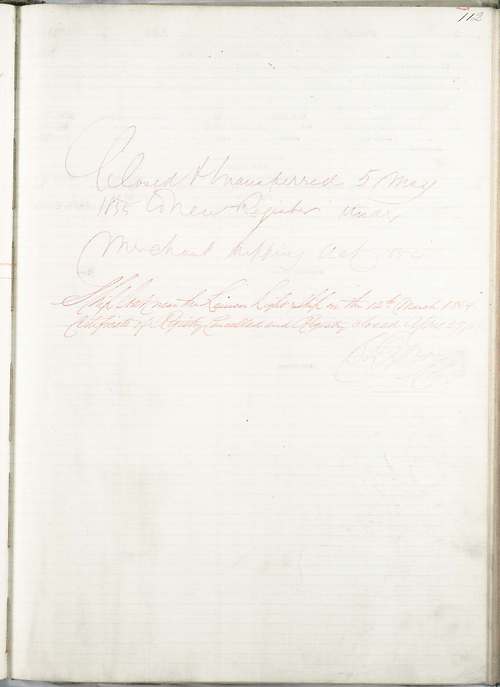 112
Closed & transferred 5 May
to new Register under
Merchant Shipping Act
Ship lost near the Light Ship on the 12th March 1884
Certificate of Registry Cancelled and Registry closed